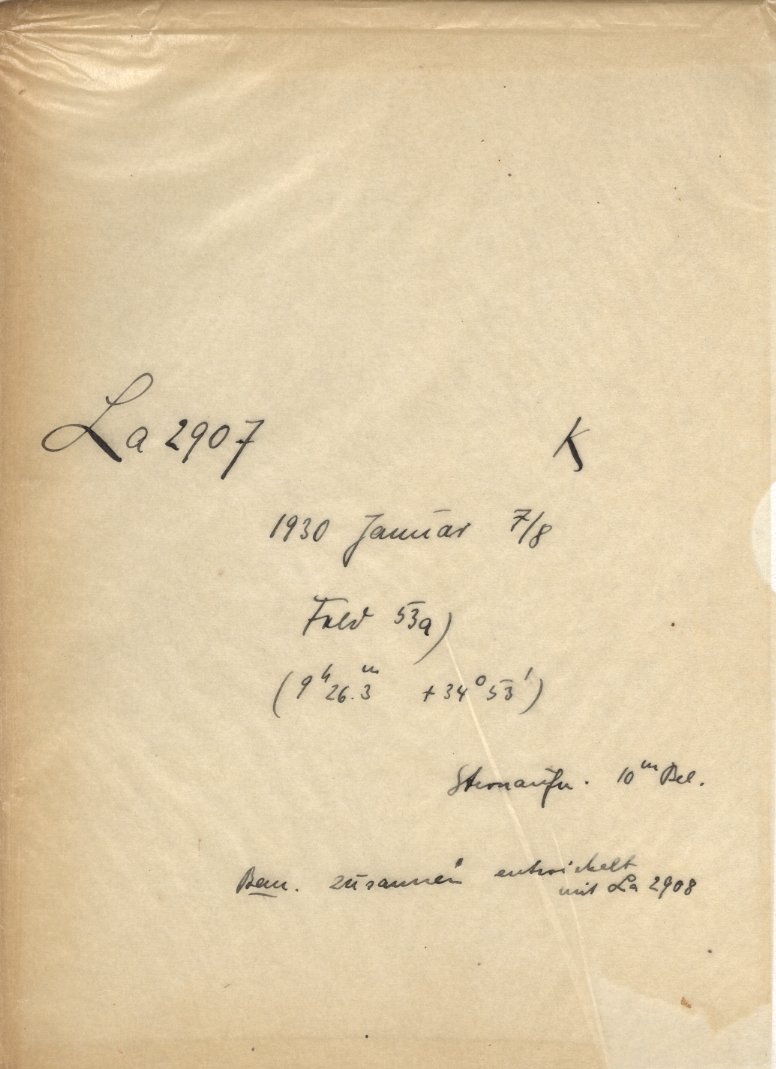 La 2907 K
1930 Januar 7/8
Feld 53a)
(9ʰ26.3ᵐ +34°53')
Sternaufn. 10ᵐ Bel.
Bem. zusammen entwickelt
mit La 2908